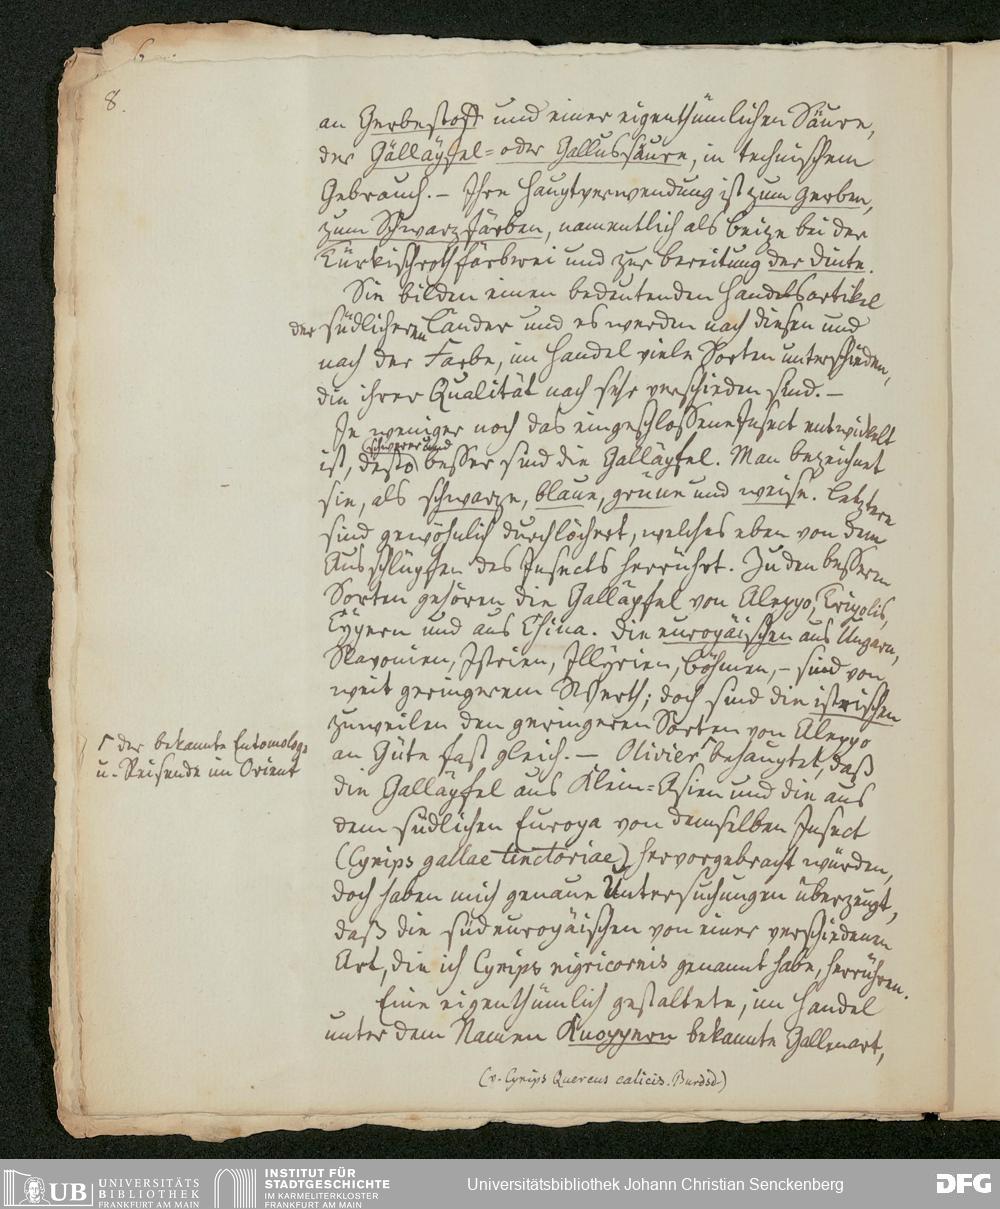 8.
an Gerbestoff und einer eigenthümlichen Säure,
der Galläpfel= oder Gallussäure, in technischem
Gebrauch. – Ihre Hauptverwendung ist zum Gerben,
zum Schwarzfärben, namentlich als Beize bei der
Türkischrothfärberei und zur Bereitung der Dinte.
Sie bilden einen bedeutenden Handelsartikel
der südlicheren Länder und es werden nach diesen und
nach der Farbe, im Handel viele Sorten unterschieden,
die ihrer Qualität nach sehr verschieden sind. –
Je weniger noch das eingeschlossene Insect entwickelt
schwerer und
ist, desto besser sind die Galläpfel. Man bezeichnet
sie, als schwarze, blaue, grüne und weise. Letztere
sind gewöhnlich durchlöchert, welches eben von dem
Ausschlüpfen des Insects herrührt. Zu den bessern
Sorten gehören die Galläpfel von Aleppo, Tripolis,
Cypern und aus China. Die europäischen aus Ungarn,
Slavonien, Istrien, Illyrien, Böhmen, – sind von
weit geringerem Werth; doch sind die istrischen
zuweilen den geringeren Sorten von Aleppo
an Güte fast gleich. – Olivier⌜ behauptet, daß
⌜ der bekannte Entomolog
u. Reisende im Orient
die Galläpfel aus Klein=Asien und die aus
dem südlichen Europa von demselben Insect
(Cynips gallae tinctoriae) hervorgebracht würden,
doch haben mich genaue Untersuchungen überzeugt,
daß die südeuropäischen von einer verschiedenen
Art, die ich Cynips nigricornis genannt habe, herrühren.
Eine eigenthümlich gestaltete, im Handel
unter dem Namen Knoppern bekannte Gallenart,
(v. Cynips Quercus calicis. Burdsd.)
UB UNIVERSITÄTS
BIBLIOTHEK
FRANKFURT AM MAIN
INSTITUT FÜR
STADTGESCHICHTE
IM KARMELITERKLOSTER
FRANKFURT AM MAIN
Universitätsbibliothek Johann Christian Senckenberg
DFG